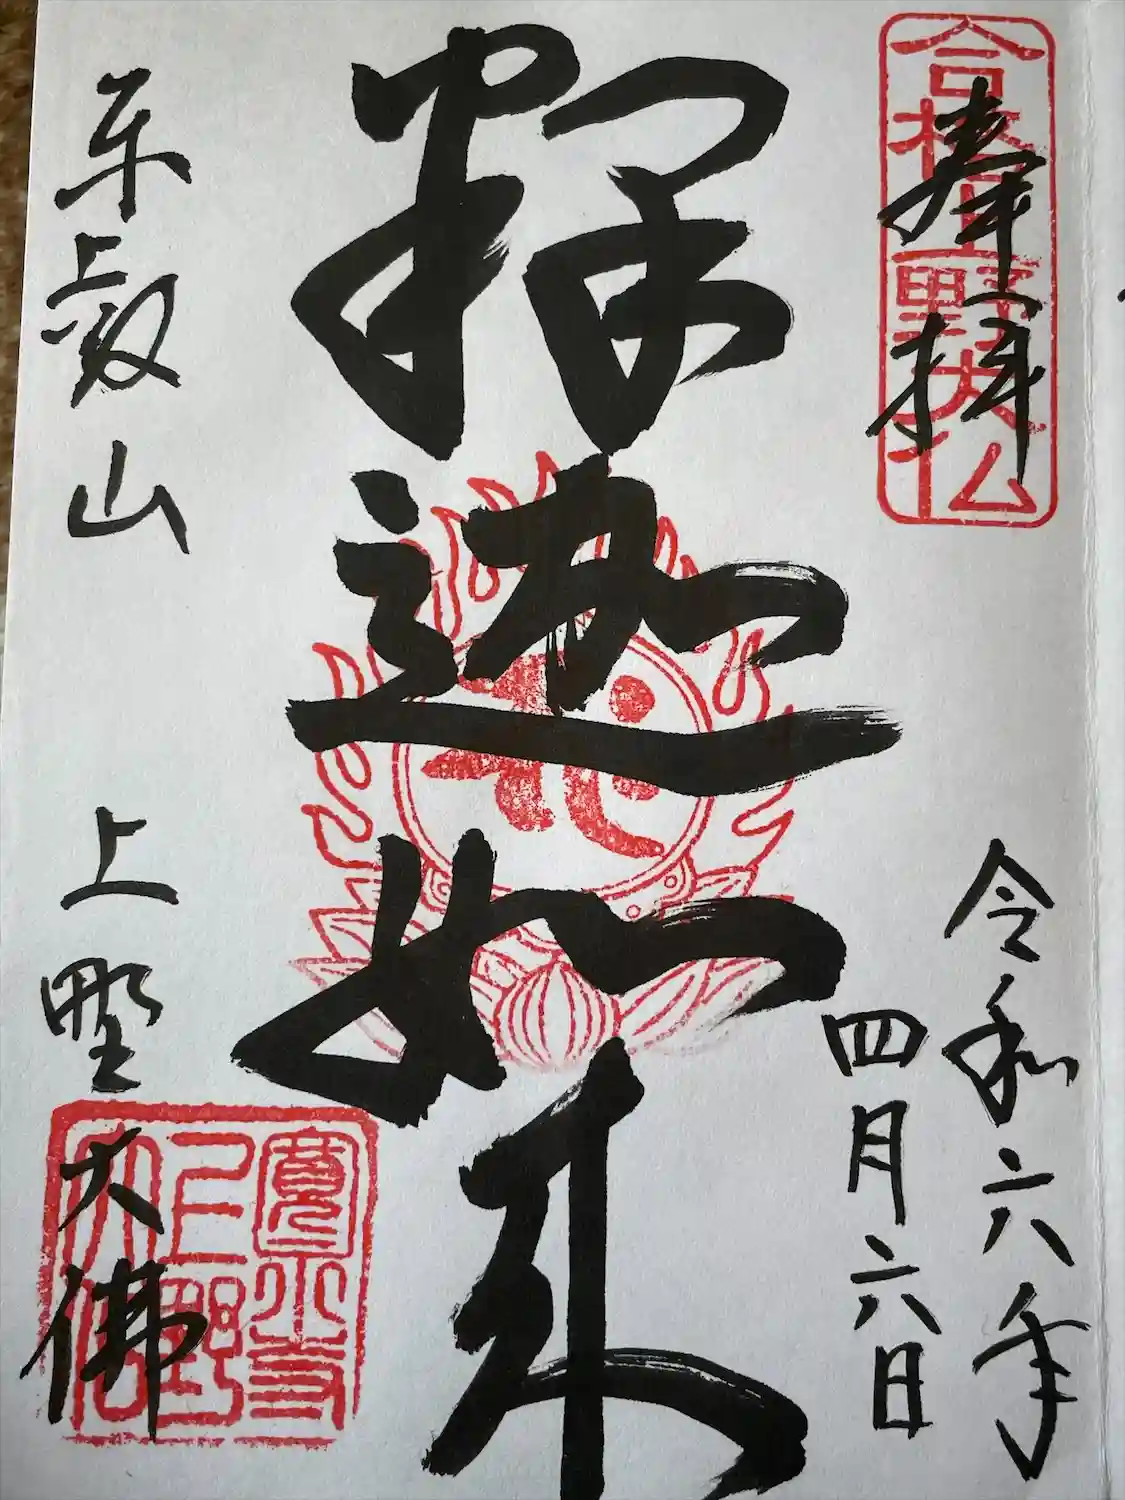 合格上野大仏
奉拝
令和六年
四月六日
釋迦如来
東叡山 上野大佛
寛永寺
上野
大仏